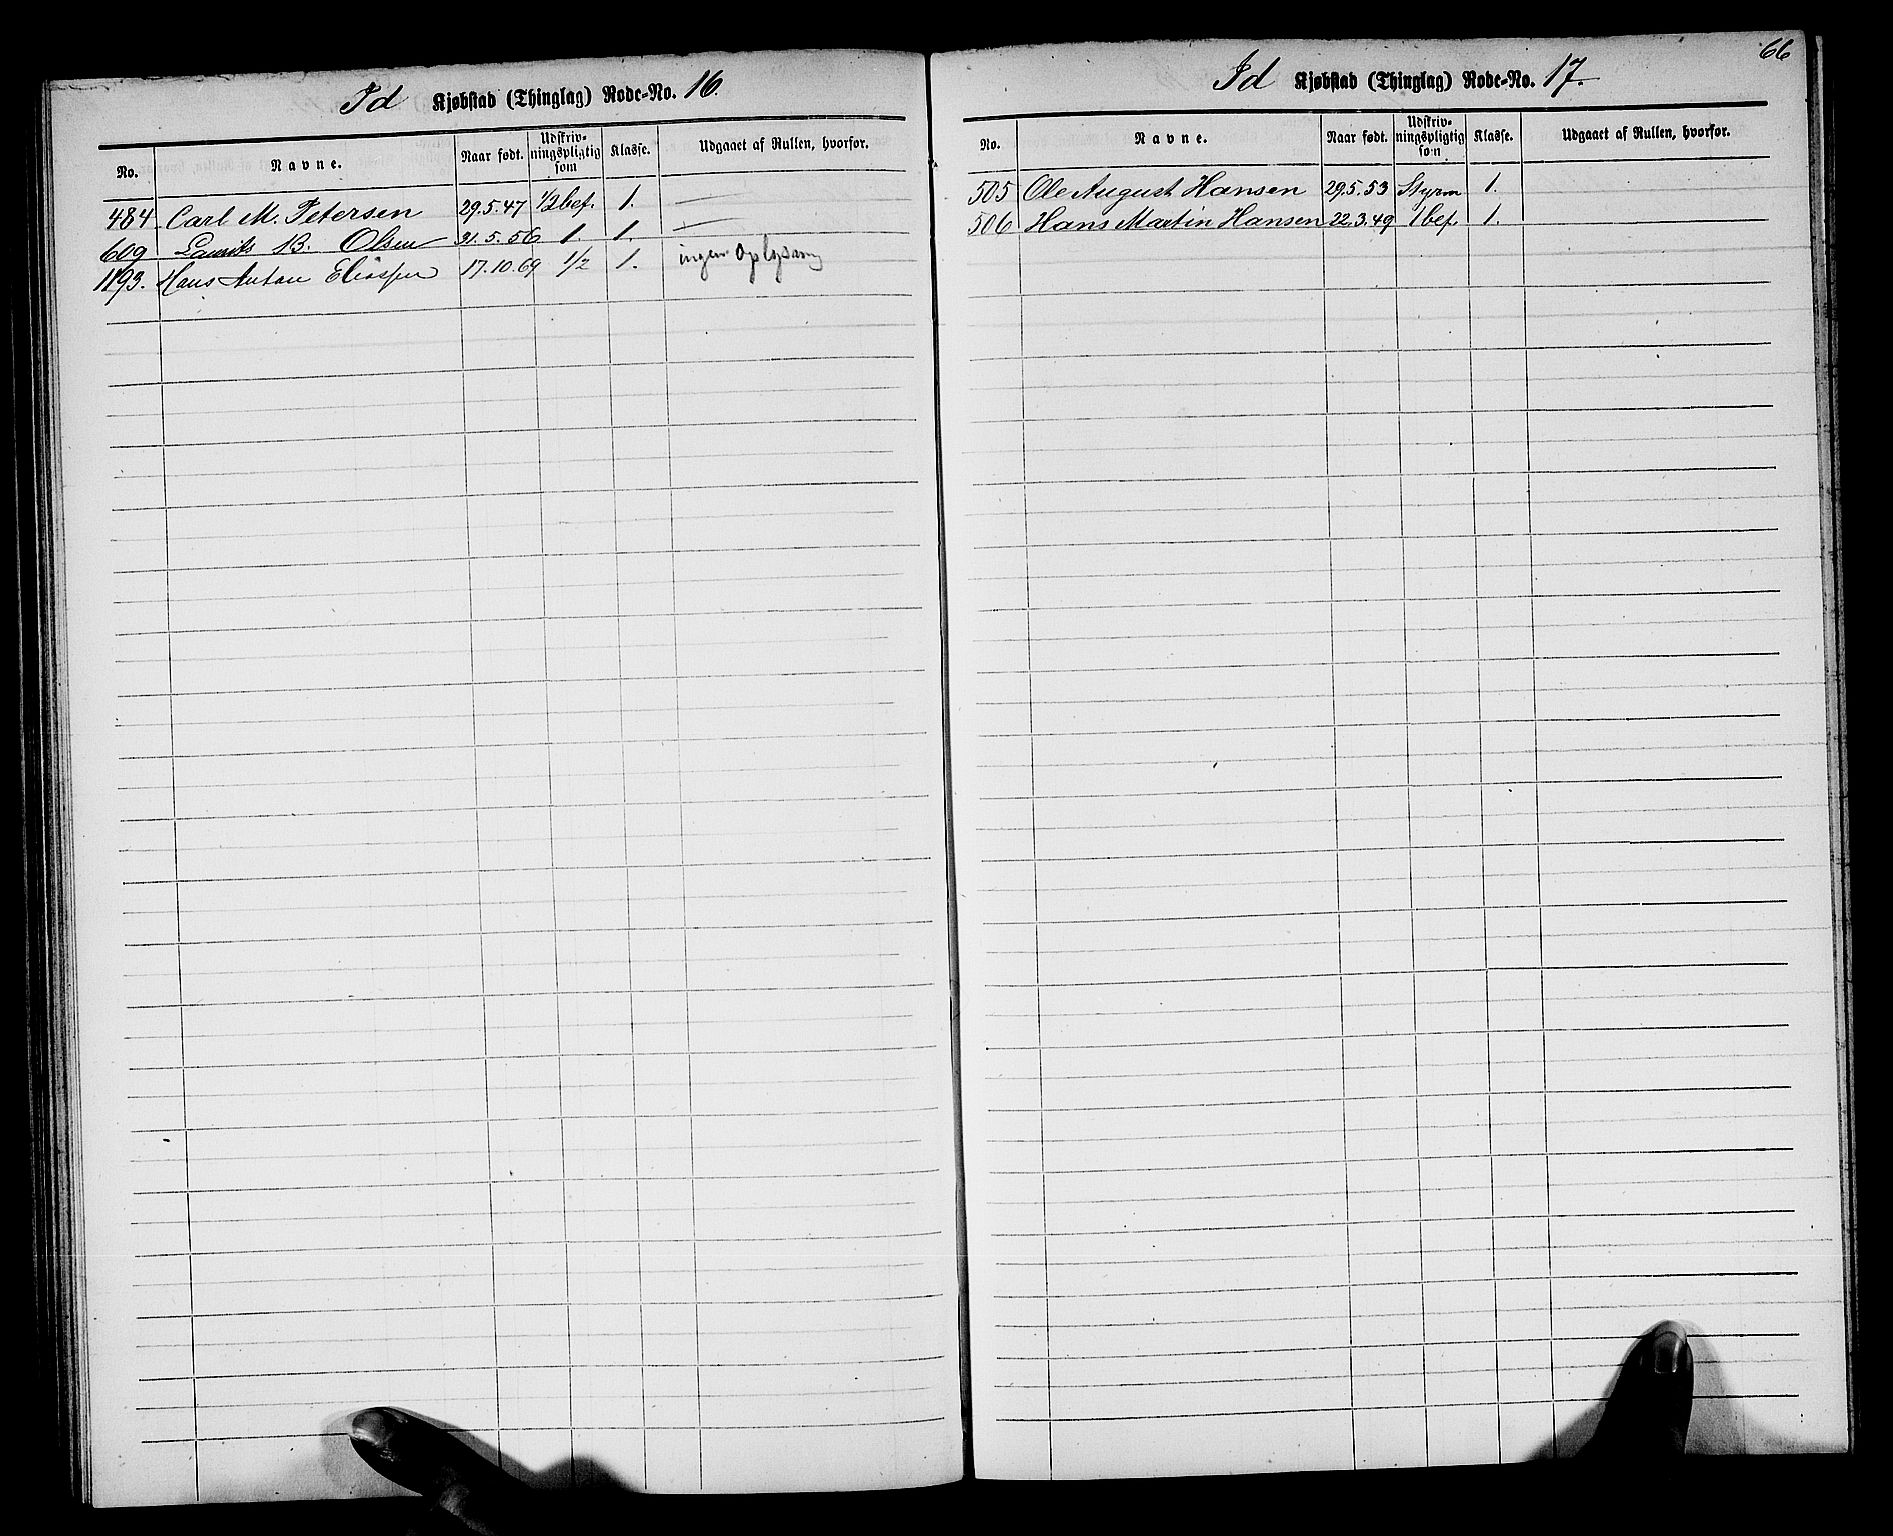 Id Kjøbstad (Thinglag) Rode-No. 16.
No. Navne. Naar født. Udskriv-ningspligtig som Klasse. Udgaaet af Rullen, hvorfor.
484. Carl M. Petersen 29.5.47 1/2 bef. 1. —
609 Laurits B. Olsen 31.5.56 1. 1. —
1193. Hans Anton Eliassen 17.10.69 1/2 1. ingen Oplysning
66
Id Kjøbstad (Thinglag) Rode-No. 17.
No. Navne. Naar født. Udskriv-ningspligtig som Klasse. Udgaaet af Rullen, hvorfor.
505 Ole August Hansen 29.5.53 Styrm 1.
506 Hans Martin Hansen 22.3.49 1 bef. 1.